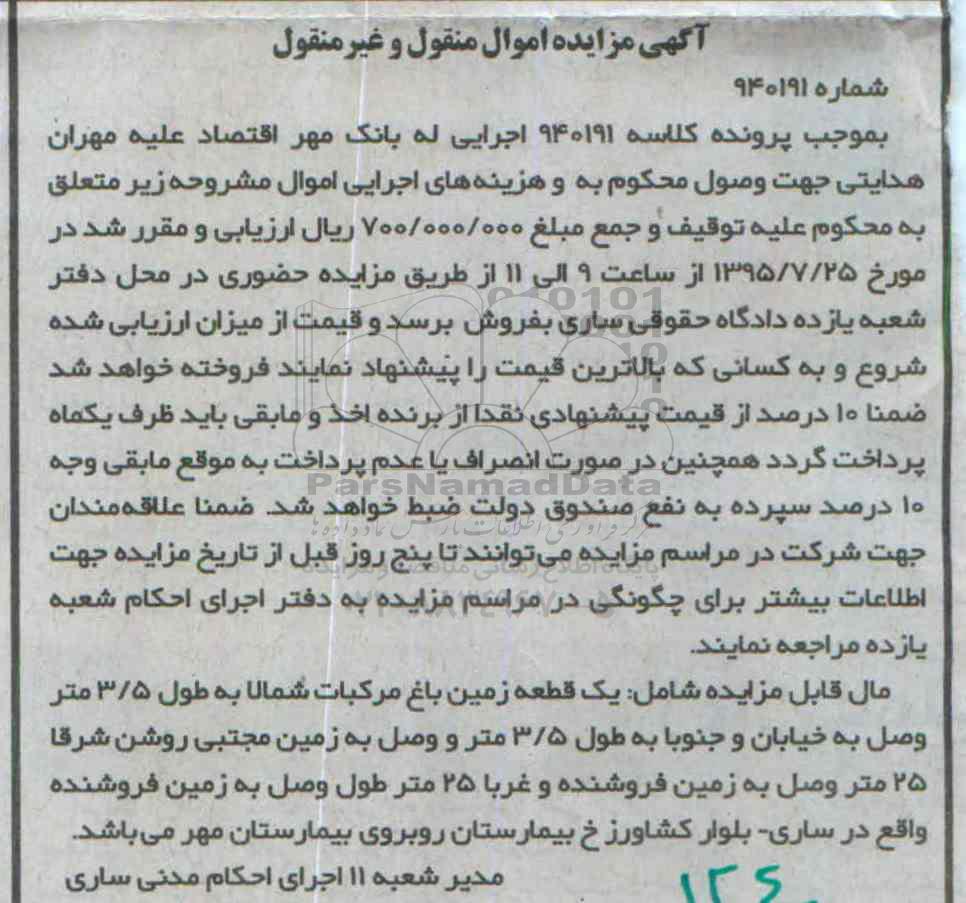 آگهی مزایده اموال منقول و غیر منقول
شماره ۹۴۰۱۹۱
بموجب پرونده کلاسه ۹۴۰۱۹۱ اجرایی له بانک مهر اقتصاد علیه مهران
هدایتی جهت وصول محکوم به و هزینه‌های اجرایی اموال مشروحه زیر متعلق
به محکوم علیه توقیف و جمع مبلغ ۷۰۰/۰۰۰/۰۰۰ ریال ارزیابی و مقرر شد در
مورخ ۱۳۹۵/۷/۲۵ از ساعت ۹ الی ۱۱ از طریق مزایده حضوری در محل دفتر
شعبه یازده دادگاه حقوقی ساری بفروش برسد و قیمت از میزان ارزیابی شده
شروع و به کسانی که بالاترین قیمت را پیشنهاد نمایند فروخته خواهد شد
ضمنا ۱۰ درصد از قیمت پیشنهادی نقدا از برنده اخذ و مابقی باید ظرف یکماه
پرداخت گردد همچنین در صورت انصراف یا عدم پرداخت به موقع مابقی وجه
ParsNamadData
۱۰ درصد سپرده به نفع صندوق دولت ضبط خواهد شد. ضمنا علاقه‌مندان
جهت شرکت در مراسم مزایده می‌توانند تا پنج روز قبل از تاریخ مزایده جهت
اطلاعات بیشتر برای چگونگی در مراسم مزایده به دفتر اجرای احکام شعبه
یازده مراجعه نمایند.
مال قابل مزایده شامل: یک قطعه زمین باغ مرکبات شمالا به طول ۳/۵ متر
وصل به خیابان و جنوبا به طول ۳/۵ متر و وصل به زمین مجتبی روشن شرقا
۲۵ متر وصل به زمین فروشنده و غربا ۲۵ متر طول وصل به زمین فروشنده
واقع در ساری- بلوار کشاورز خ بیمارستان روبروی بیمارستان مهر می‌باشد.
مدیر شعبه ۱۱ اجرای احکام مدنی ساری